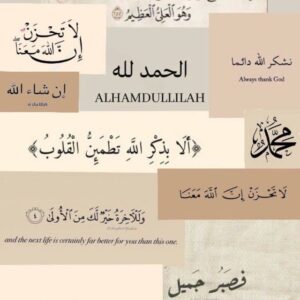 وَهُوَ الْعَلِيُّ الْعَظِيمُ
لَا تَحْزَنْ
إِنَّ اللَّهَ مَعَنَا
الحمد لله
ALHAMDULLILAH
نشكر الله دائما
Always thank God
إن شاء الله
﴿أَلَا بِذِكْرِ اللَّهِ تَطْمَئِنُّ الْقُلُوبُ﴾
محمد
لَا تَحْزَنْ إِنَّ اللَّهَ مَعَنَا
وَلَلْآخِرَةُ خَيْرٌ لَّكَ مِنَ الْأُولَىٰ ٤
and the next life is certainly far better for you than this one.
فصبر جميل